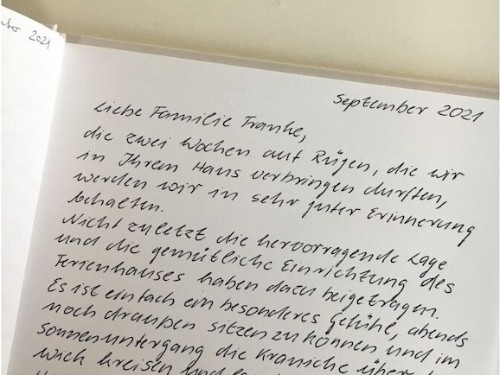 2021
September 2021
Liebe Familie Franke,
die zwei Wochen auf Rügen, die wir
in Ihrem Haus verbringen durften,
werden wir in sehr guter Erinnerung
behalten.
Nicht zuletzt die hervorragende Lage
und die gemütliche Einrichtung des
Ferienhauses haben dazu beigetragen.
Es ist einfach ein besonderes Gefühl, abends
noch draußen sitzen zu können und im
Sonnenuntergang die Kraniche über
kreisen und